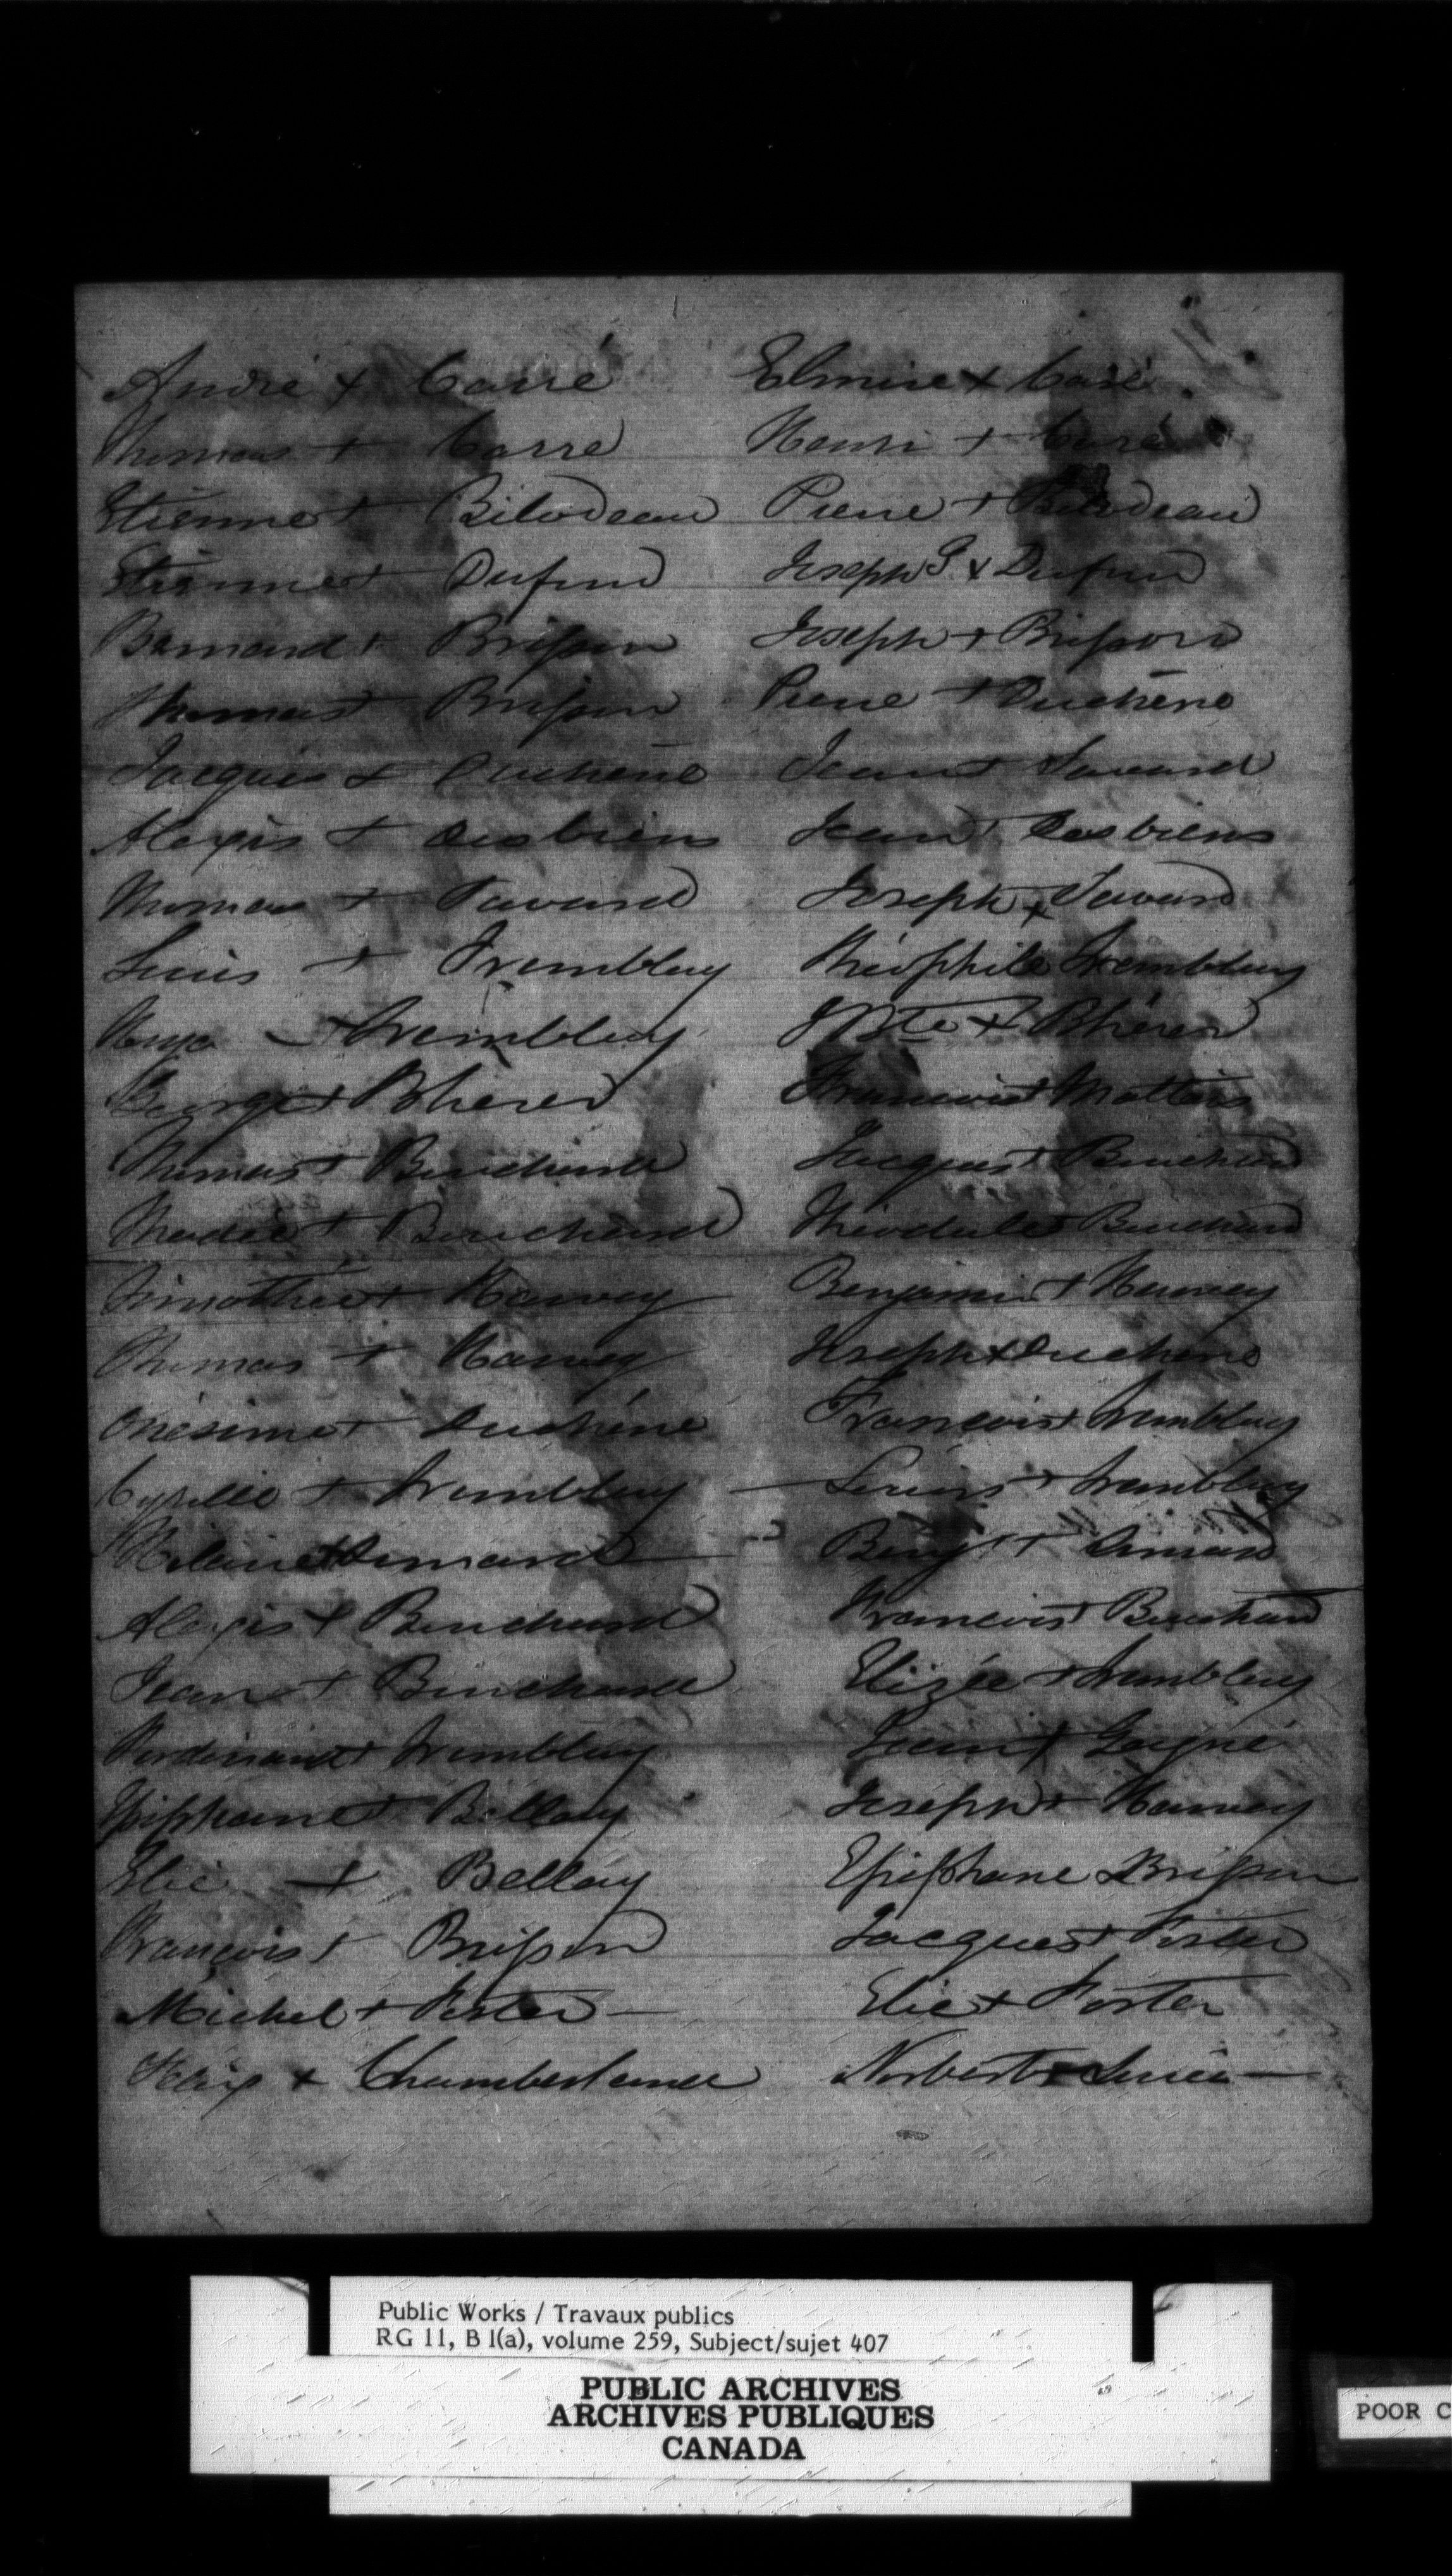 André + Carré Elmire + Carré
Thomas + Carré Henri + Carré
Etienne + Bilodeau Pierre + Bilodeau
Etienne + Dufour Joseph G + Dufour
Bernard + Brisson Joseph + Brisson
Thomas + Brisson Pierre + Duchêne
Jacques + Duchêne Jean + Savard
Alexis + Desbiens Jean + Desbiens
Thomas + Savard Joseph + Savard
Louis + Tremblay Théophile Tremblay
Hugo + Tremblay J Bte + Bhérer
George + Bhérer François + Maltais
Thomas + Bouchard Jacques + Bouchard
Madée + Bouchard Théodule + Bouchard
Timothée + Harvey Benjamin + Harvey
Thomas + Harvey Joseph + Duchene
Onésime + Duchéne François + Tremblay
Cyrille + Tremblay — Louis + Tremblay
Hilaire + Simard — Benj + Simard
Alexis + Bouchard François + Bouchard
Jean + Bouchard Elizée + Tremblay
Ferdinand + Tremblay + Gagné
Epiphane + Bellay Joseph + Harvey
Elie + Bellay Epiphane + Brisson
François + Brisson Jacques + Foster
Michel + Foster — Elie + Foster
Félix + Chamberland Norbert +
Public Works / Travaux publics
RG 11, B 1(a), volume 259, Subject/sujet 407
PUBLIC ARCHIVES
ARCHIVES PUBLIQUES
CANADA
POOR C